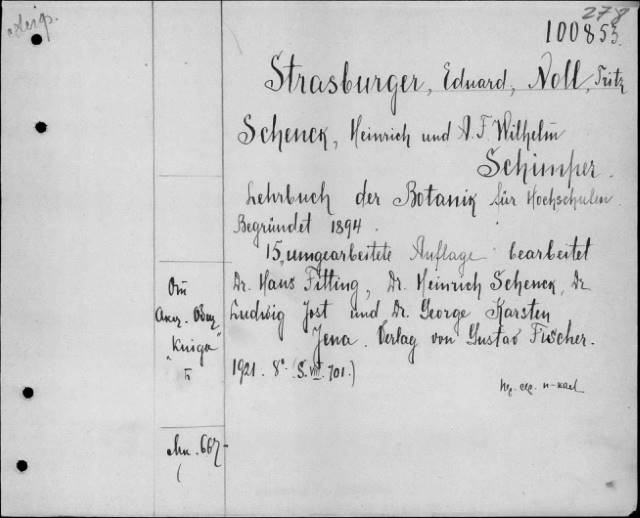 278
100853.
Strasburger, Eduard, Noll, Fritz
Schenck, Heinrich und A. F. Wilhelm
Schimper.
Lehrbuch der Botanik für Hochschulen.
Begründet 1894.
15. umgearbeitete Auflage bearbeitet
Dr. Hans Fitting, Dr. Heinrich Schenck, Dr
Ludwig Jost und Dr. George Karsten
Jena. Verlag von Gustav Fischer.
1921. 8° (S. VIII. 701.)
От
"Kniga"
667